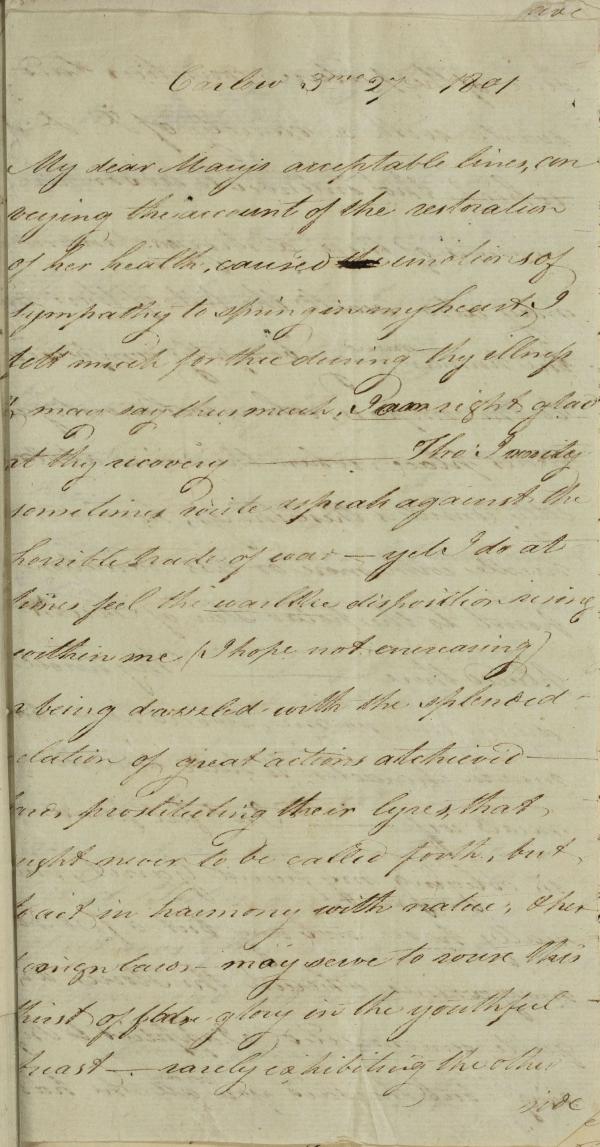 Carlow 3mo 27 1801
My dear Mary's acceptable lines, con
veying the account of the restoration
of her health, caused emotions of
sympathy to spring in my heart, I
felt much for thee during thy illness
& may say thus much, I am right glad
at thy recovery — Tho' I
sometimes write & speak against the
horrible trade of war — yet I do at
times feel the warlike disposition rising
within me (I hope not encreasing)
being dazzled with the splendid
of great actions atchieved —
prostituting their lyres, that
ought never to be called forth, but
to act in harmony with nature, & her
benign laws — may serve to rouse this
thirst of false glory in the youthful
breast — rarely exhibiting the other
side